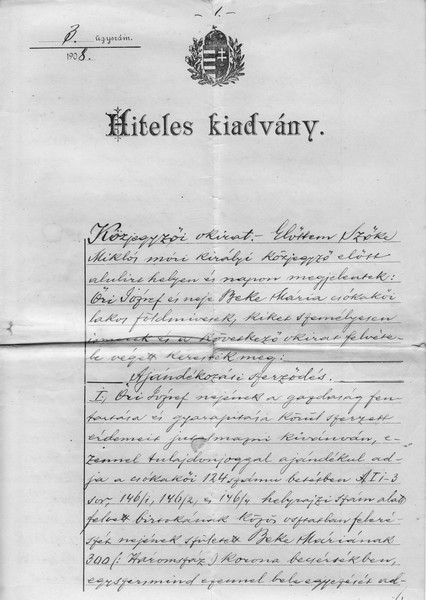 - 1. -
3. ügyszám.
1908.
Hiteles kiadvány.
Közjegyzői okirat. - Előttem Szőke
Miklós móri királyi közjegyző előtt
alulirt helyen és napon megjelentek:
Őri József és neje Beke Mária csókakői
lakos földmivesek, kiket személyesen
ismerek és a következő okirat felvéte-
le végett kerestek meg:
Ajándékozási szerződés.
I, Őri József nejének a gazdaság fen-
tartása és gyarapitása körül szerzett
érdemeit jutalmazni kivánván, e-
zennel tulajdonjoggal ajándékul ad-
ja a csókakői 124 számu betétben A I 1-3
sor, 146/1, 146/2, és 146/4 helyrajzi szám alatt
felvett birtokának közös osztatlan feleré-
szét nejének született Beke Máriának
300 /: Háromszáz :/ korona becsértékben,
egyszersmind ezennel bele egyezését ad-